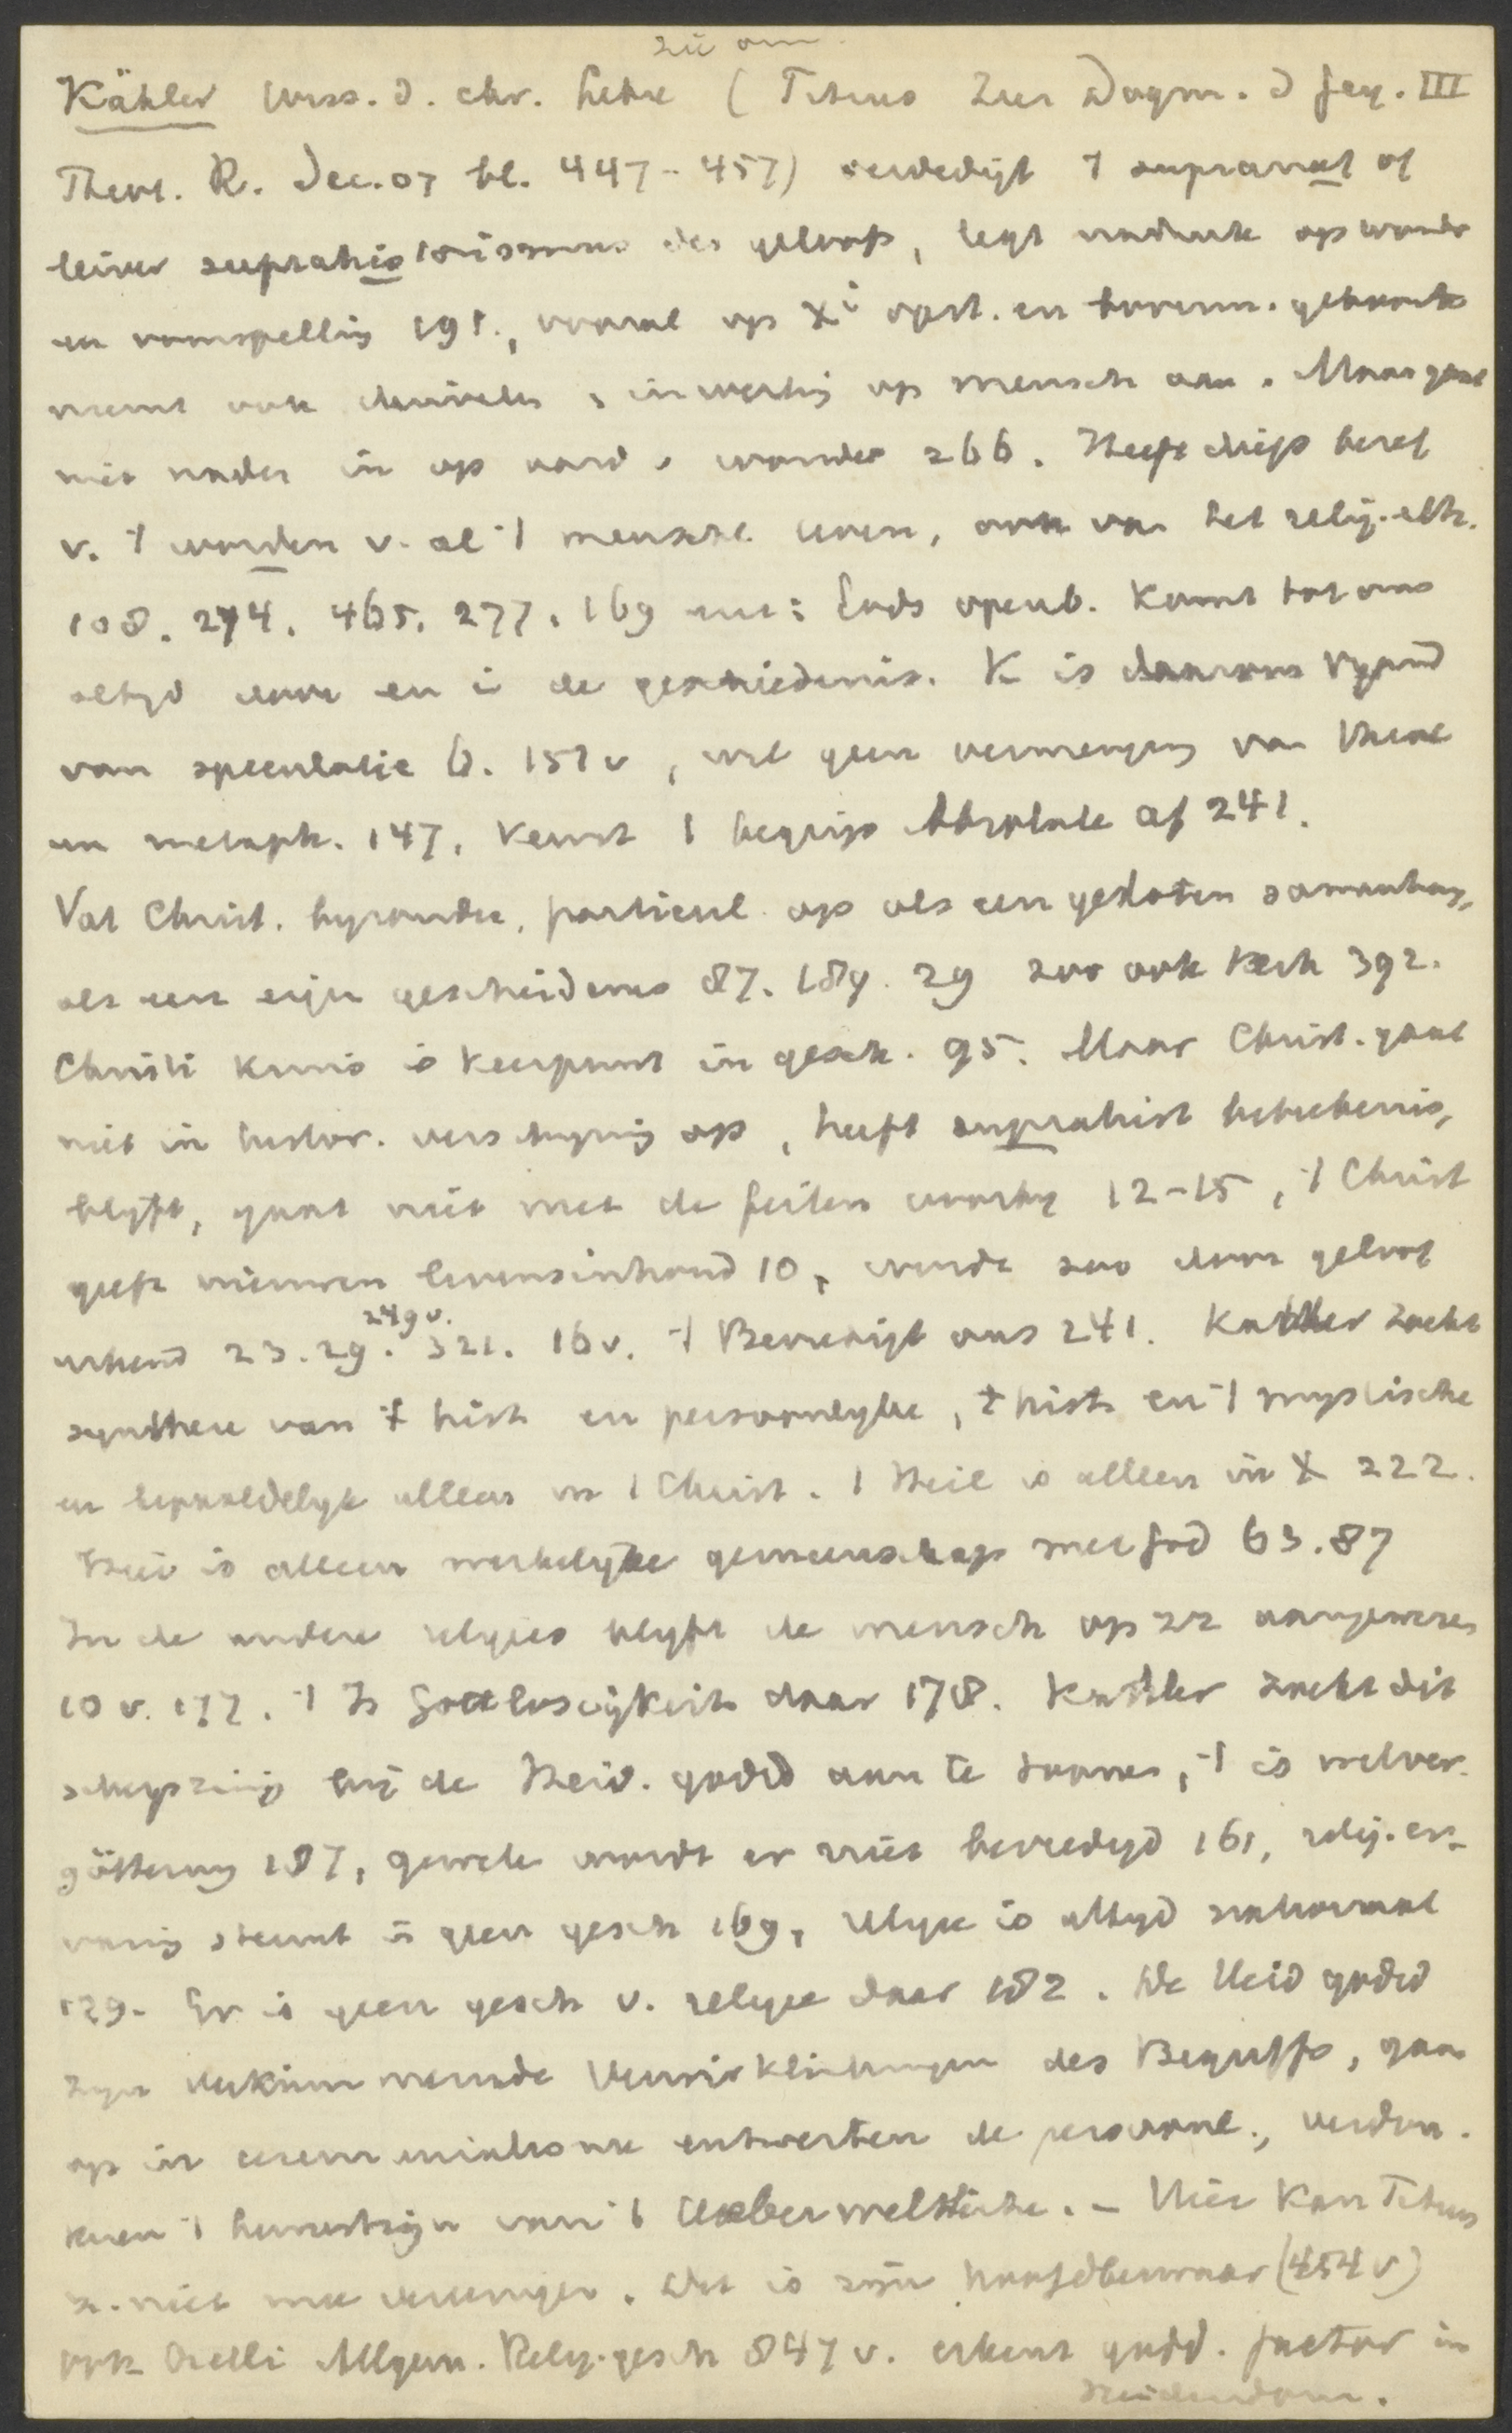 zie om
Kähler Wiss. d. chr. Lehre (Titius Zur Dogm. d Geg. III
Theol. R. Dec. 07 bl. 447-457) verdedigt 't supranat of
liever suprahistorismus des geloofs, legt nadruk op wonder
en voorspelling 191., vooral op Xi opst. en bovenn. geboorte
neemt ook duivelen , inwerking op mensch aan. Maar gaat
niet nader in op aard v wonder 266. Heeft diep besef
v. 't worden v. al 't menschl. leven, ook van het relig. eth.
108. 274. 465. 277. 169 enz: Gods openb. komt tot ons
altijd door en in de geschiedenis. K is daarom vijand
van speculatie 6. 157 v, wil geen vermenging van theol
en metaph. 147, keurt 't begrip Absolute af 241.
Vat Christ. bijzonder, particul. op als een gesloten samenhang,
als een eigen geschiedenis 87. 189. 29 zoo ook kerk 392.
Christi kruis is keerpunt in gesch. 95. Maar Christ. gaat
niet in histor. verschijning op, heeft suprahist beteekenis,
blijft, gaat niet met de feiten voorbij 12-15, 't Christ
geeft nieuwen levensinhoud 10, wordt zoo door geloof
erkend 23. 29. 249 v. 321. 16 v. 't Bevredigt ons 241. Kähler zoekt
synthese van 't hist en persoonlijke, 't hist en 't mystische
en bepaaldelijk alleen in 't Christ. 't Heil is alleen in X 222.
Hier is alleen werkelijke gemeenschap met God 63. 87
In de andere religies blijft de mensch op zz aangewezen
10 v. 177. 't Is Gottlosigkeit daar 178. Kähler zoekt dit
scherpzinnig bij de Heid. godsd aan te toonen, 't is weltver-
götterung 187, geweten wordt er niet bevredigd 161, relig. er-
varing steunt in geen gesch 169, religie is altijd nationaal
129. Er is geen gesch v. religie daar 182. De Heid godsd
zijn verkümmernde Verwirklichungen des Begriffs, gaan
op in ceremonieele entwerten de persoonl., verdon-
keren 't bewustzijn van 't Ueberweltliche. - Hier kan Titius
z. niet mee vereenigen. Dat is zijn hoofdbezwaar (454 v)
ook Orelli Allgem. Relig. gesch 847 v. erkent godd. factor in
Heidendom.